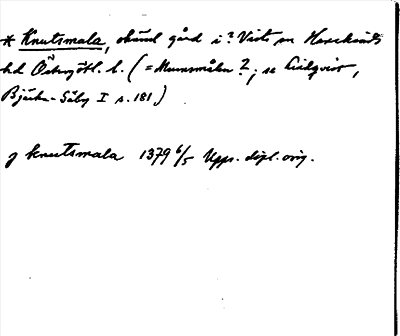 * Knutsmala, okänd gård i? Västs sn Harekinds
hd Östergötl. l. (= Munsmålen?; se Lindqvist,
Bjärka-Säby I s. 181)
j knutsmala 1379 6/5 Upps. dipl. orig.